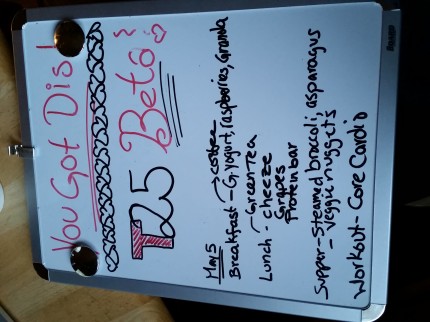 You Got Dis!
T25 Beta!
May 5
Breakfast - G. yogurt, raspberries, Granola
coffee
Lunch - Green tea
- cheeze
Grapes
Protein bar
Supper - Steamed brocoli, asparagus
- veggie nuggets
Workout - Core Cardio